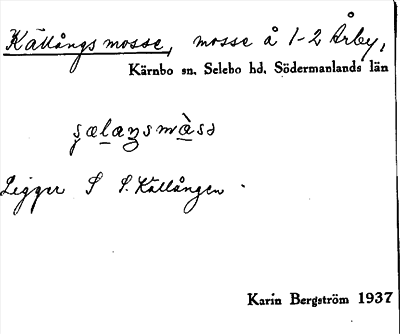 Källångs mosse, mosse å 1-2 Årby,
Kärnbo sn. Selebo hd. Södermanlands län
Ligger S S. Källången.
Karin Bergström 1937